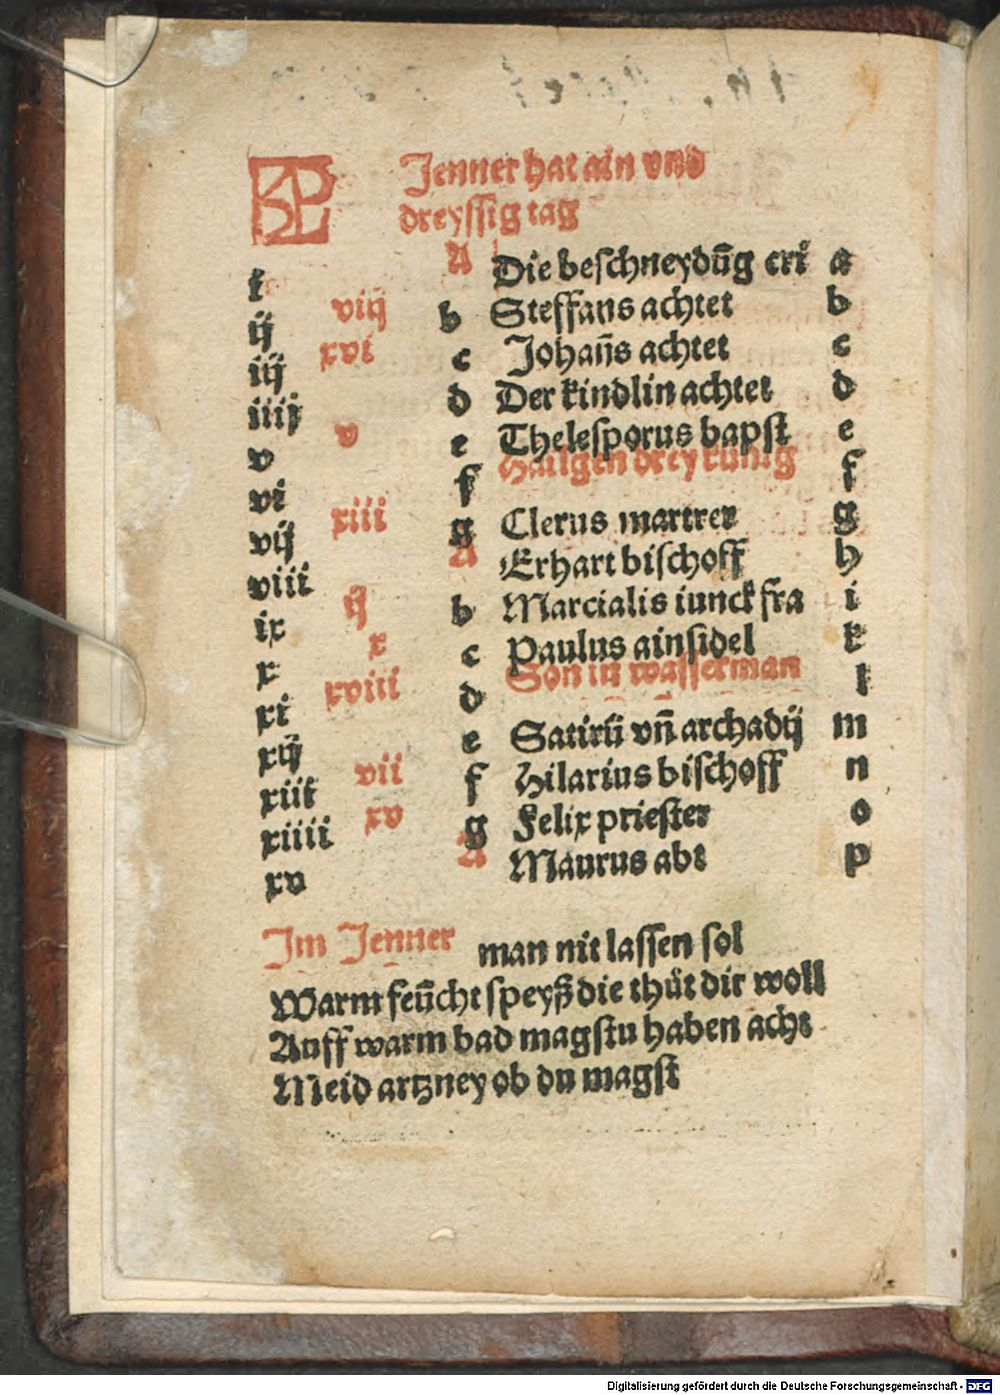 KL Jenner hat ain vnd
dreyssig tag
i A Die beschneydūg cri a
ij viij b Steffans achtet b
iij xvi c Johañs achtet c
iiij d Der kindlin achtet d
v v e Thelesporus bapst e
vi f Hailgen drey künig f
vij xiii g Clerus martrer g
viii A Erhart bischoff h
ix ij b Marcialis iunckfra i
x x c Paulus ainsidel k
xi xviii d Son in wasserman l
xij e Satirū vñ archadij m
xiii vii f Hilarius bischoff n
xiiii xv g Felix priester o
xv A Maurus abt p
Im Jenner man nit lassen sol
Warm feücht speyß die thůt dir woll
Auff warm bad magstu haben acht
Meid artzney ob du magst
Digitalisierung gefördert durch die Deutsche Forschungsgemeinschaft - DFG